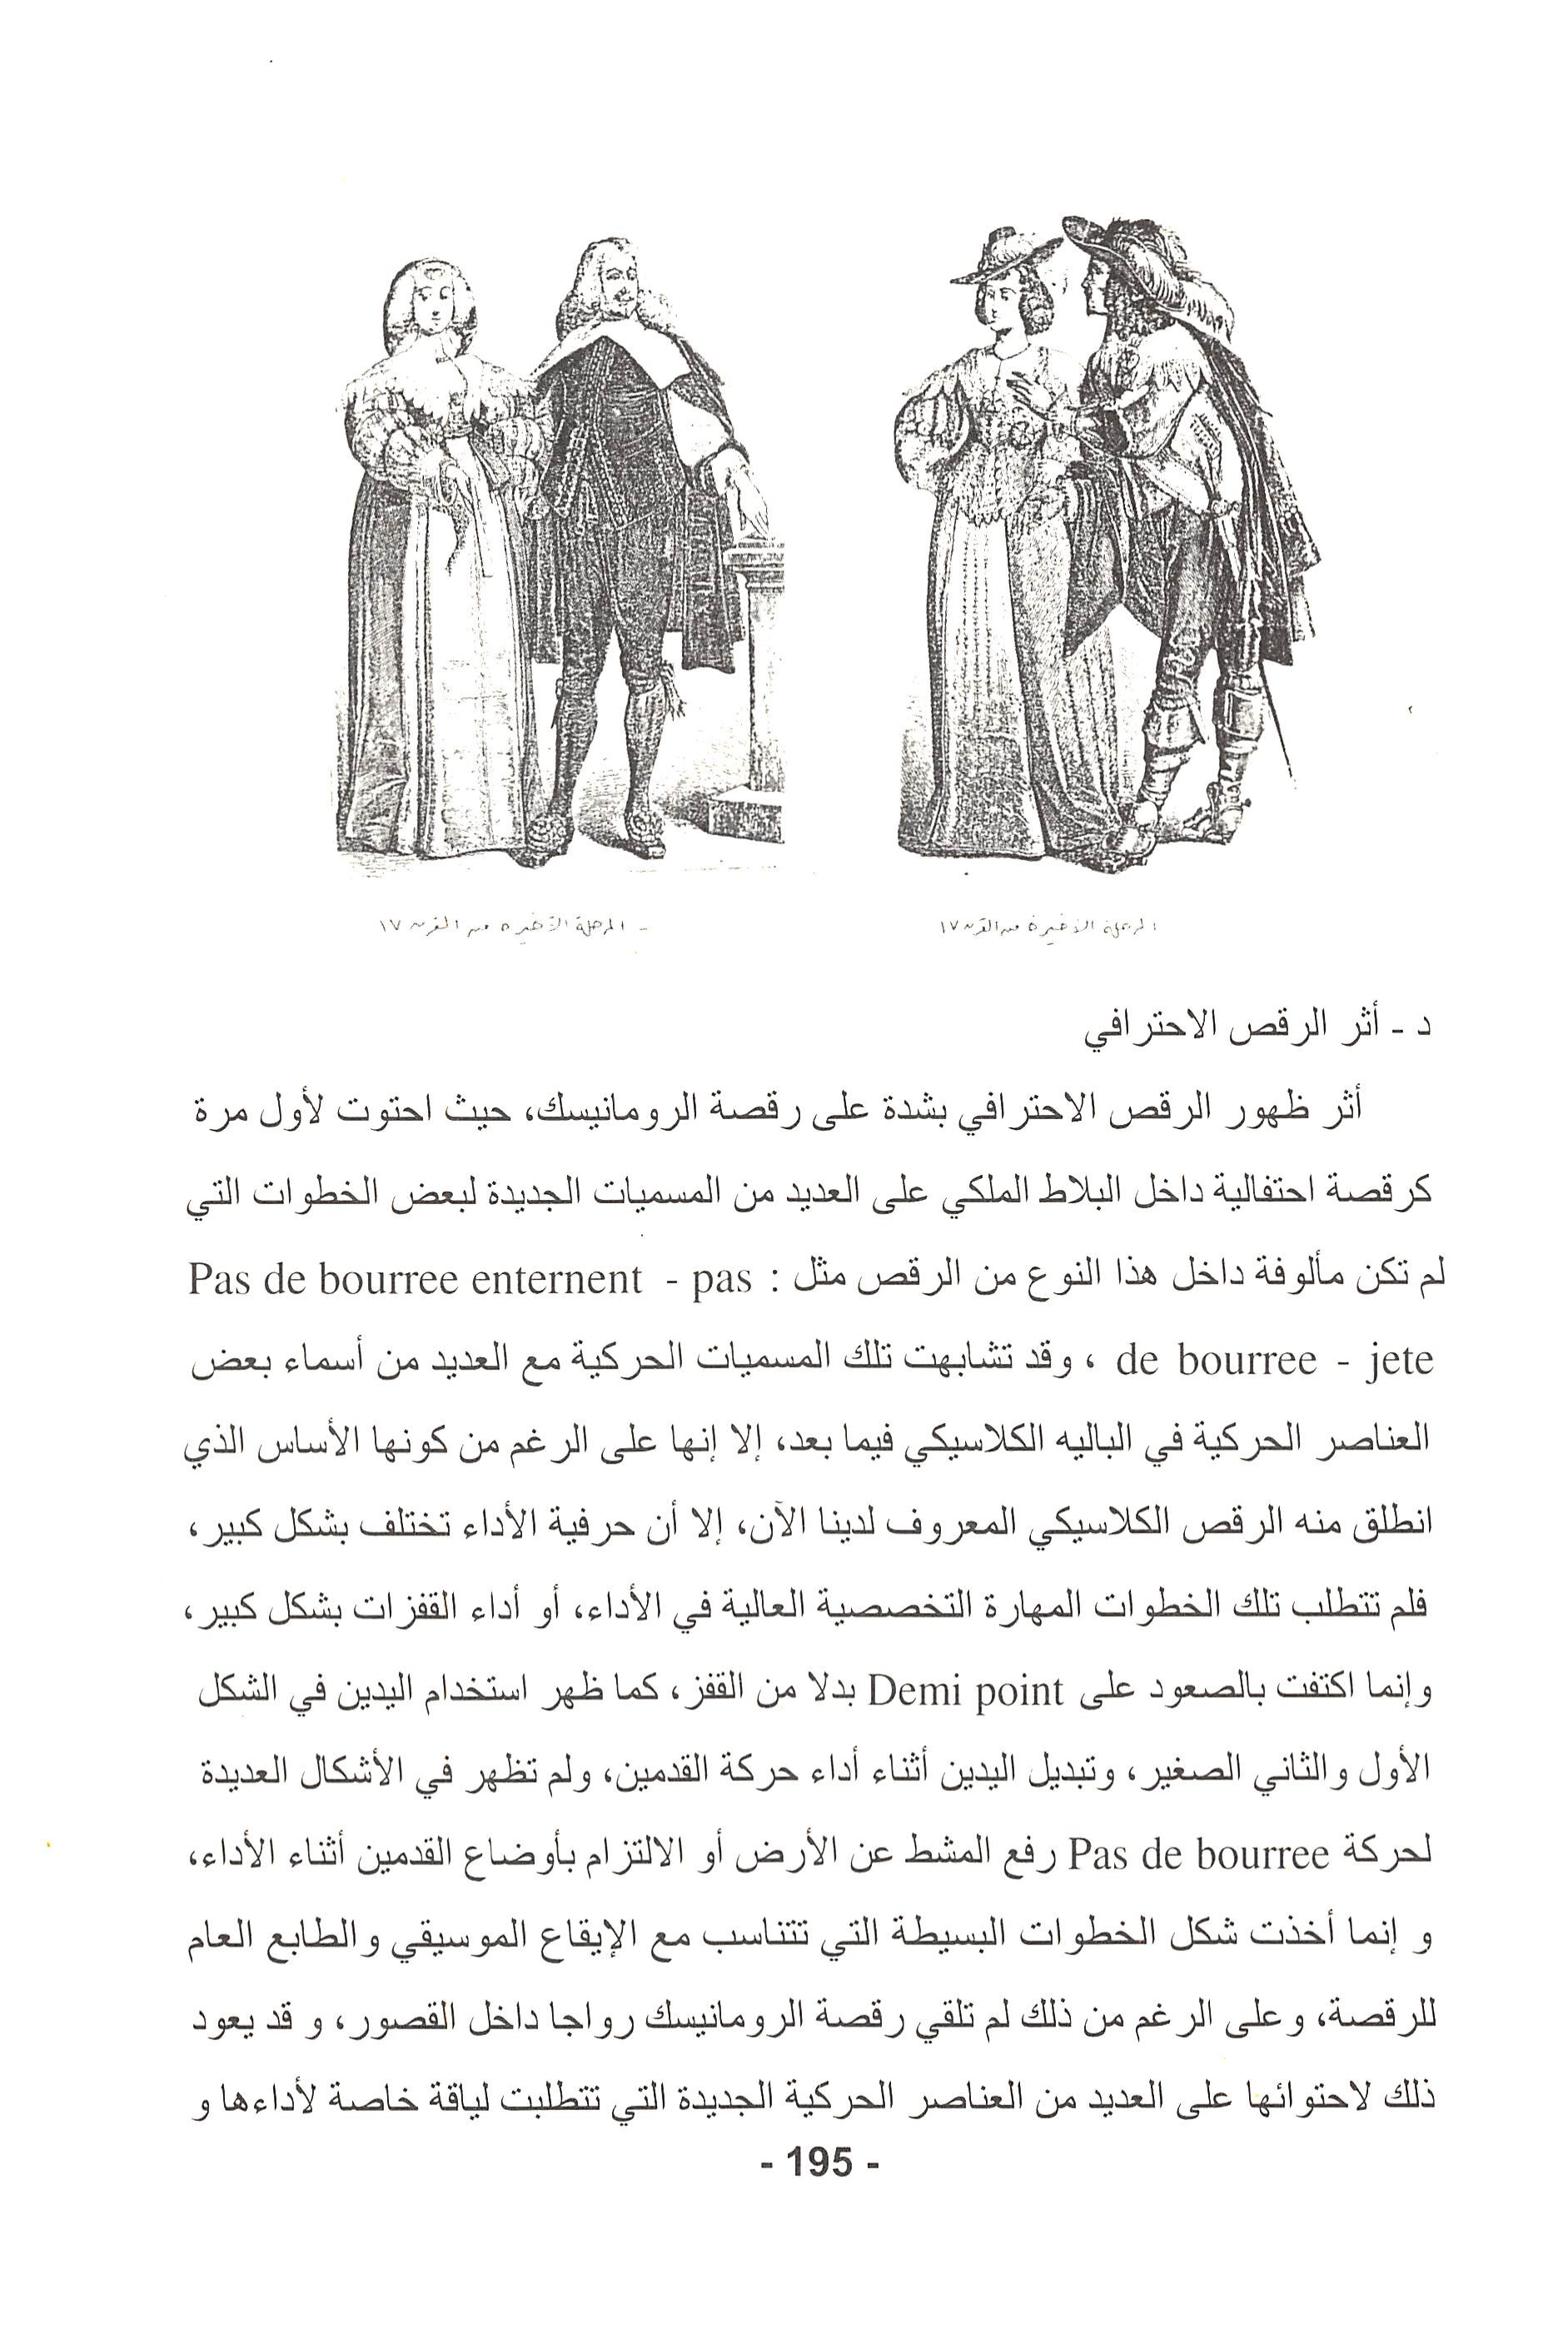 المرحلة الأخيرة من القرن ١٧
- المرحلة الأخيرة من القرن ١٧
د - أثر الرقص الاحترافي
أثر ظهور الرقص الاحترافي بشدة على رقصة الرومانيسك، حيث احتوت لأول مرة
كرقصة احتفالية داخل البلاط الملكي على العديد من المسميات الجديدة لبعض الخطوات التي
لم تكن مألوفة داخل هذا النوع من الرقص مثل : Pas de bourree enternent - pas
de bourree - jete ، وقد تشابهت تلك المسميات الحركية مع العديد من أسماء بعض
العناصر الحركية في الباليه الكلاسيكي فيما بعد، إلا إنها على الرغم من كونها الأساس الذي
انطلق منه الرقص الكلاسيكي المعروف لدينا الآن، إلا أن حرفية الأداء تختلف بشكل كبير،
فلم تتطلب تلك الخطوات المهارة التخصصية العالية في الأداء، أو أداء القفزات بشكل كبير،
وإنما اكتفت بالصعود على Demi point بدلا من القفز، كما ظهر استخدام اليدين في الشكل
الأول والثاني الصغير، وتبديل اليدين أثناء أداء حركة القدمين، ولم تظهر في الأشكال العديدة
لحركة Pas de bourree رفع المشط عن الأرض أو الالتزام بأوضاع القدمين أثناء الأداء،
و إنما أخذت شكل الخطوات البسيطة التي تتناسب مع الإيقاع الموسيقي والطابع العام
للرقصة، وعلى الرغم من ذلك لم تلقي رقصة الرومانيسك رواجا داخل القصور، و قد يعود
ذلك لاحتوائها على العديد من العناصر الحركية الجديدة التي تتطلبت لياقة خاصة لأداءها و
- 195 -